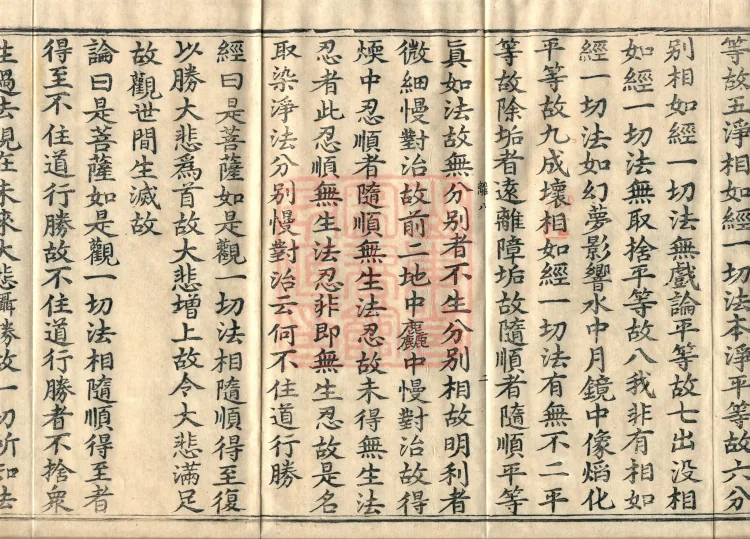 等故五淨相如經一切法本淨平等故六分
別相如經一切法無戲論平等故七出没相
如經一切法無取捨平等故八我非有相如
經一切法如幻夢影響水中月鏡中像焰化
平等故九成壞相如經一切法有無不二平
等故除垢者遠離障垢故隨順者隨順平等
離八
二
眞如法故無分别者不生分别相故明利者
微細慢對治故前二地中麤中慢對治故得
煗中忍順者隨順無生法忍故未得無生法
忍者此忍順無生法忍非即無生忍故是名
取染淨法分别慢對治云何不住道行勝
經曰是菩薩如是觀一切法相隨順得至復
以勝大悲爲首故大悲增上故令大悲滿足
故觀世間生滅故
論曰是菩薩如是觀一切法相隨順得至者
得至不住道行勝故不住道行勝者不捨衆
生過去現在未來大悲攝勝故一切所知法